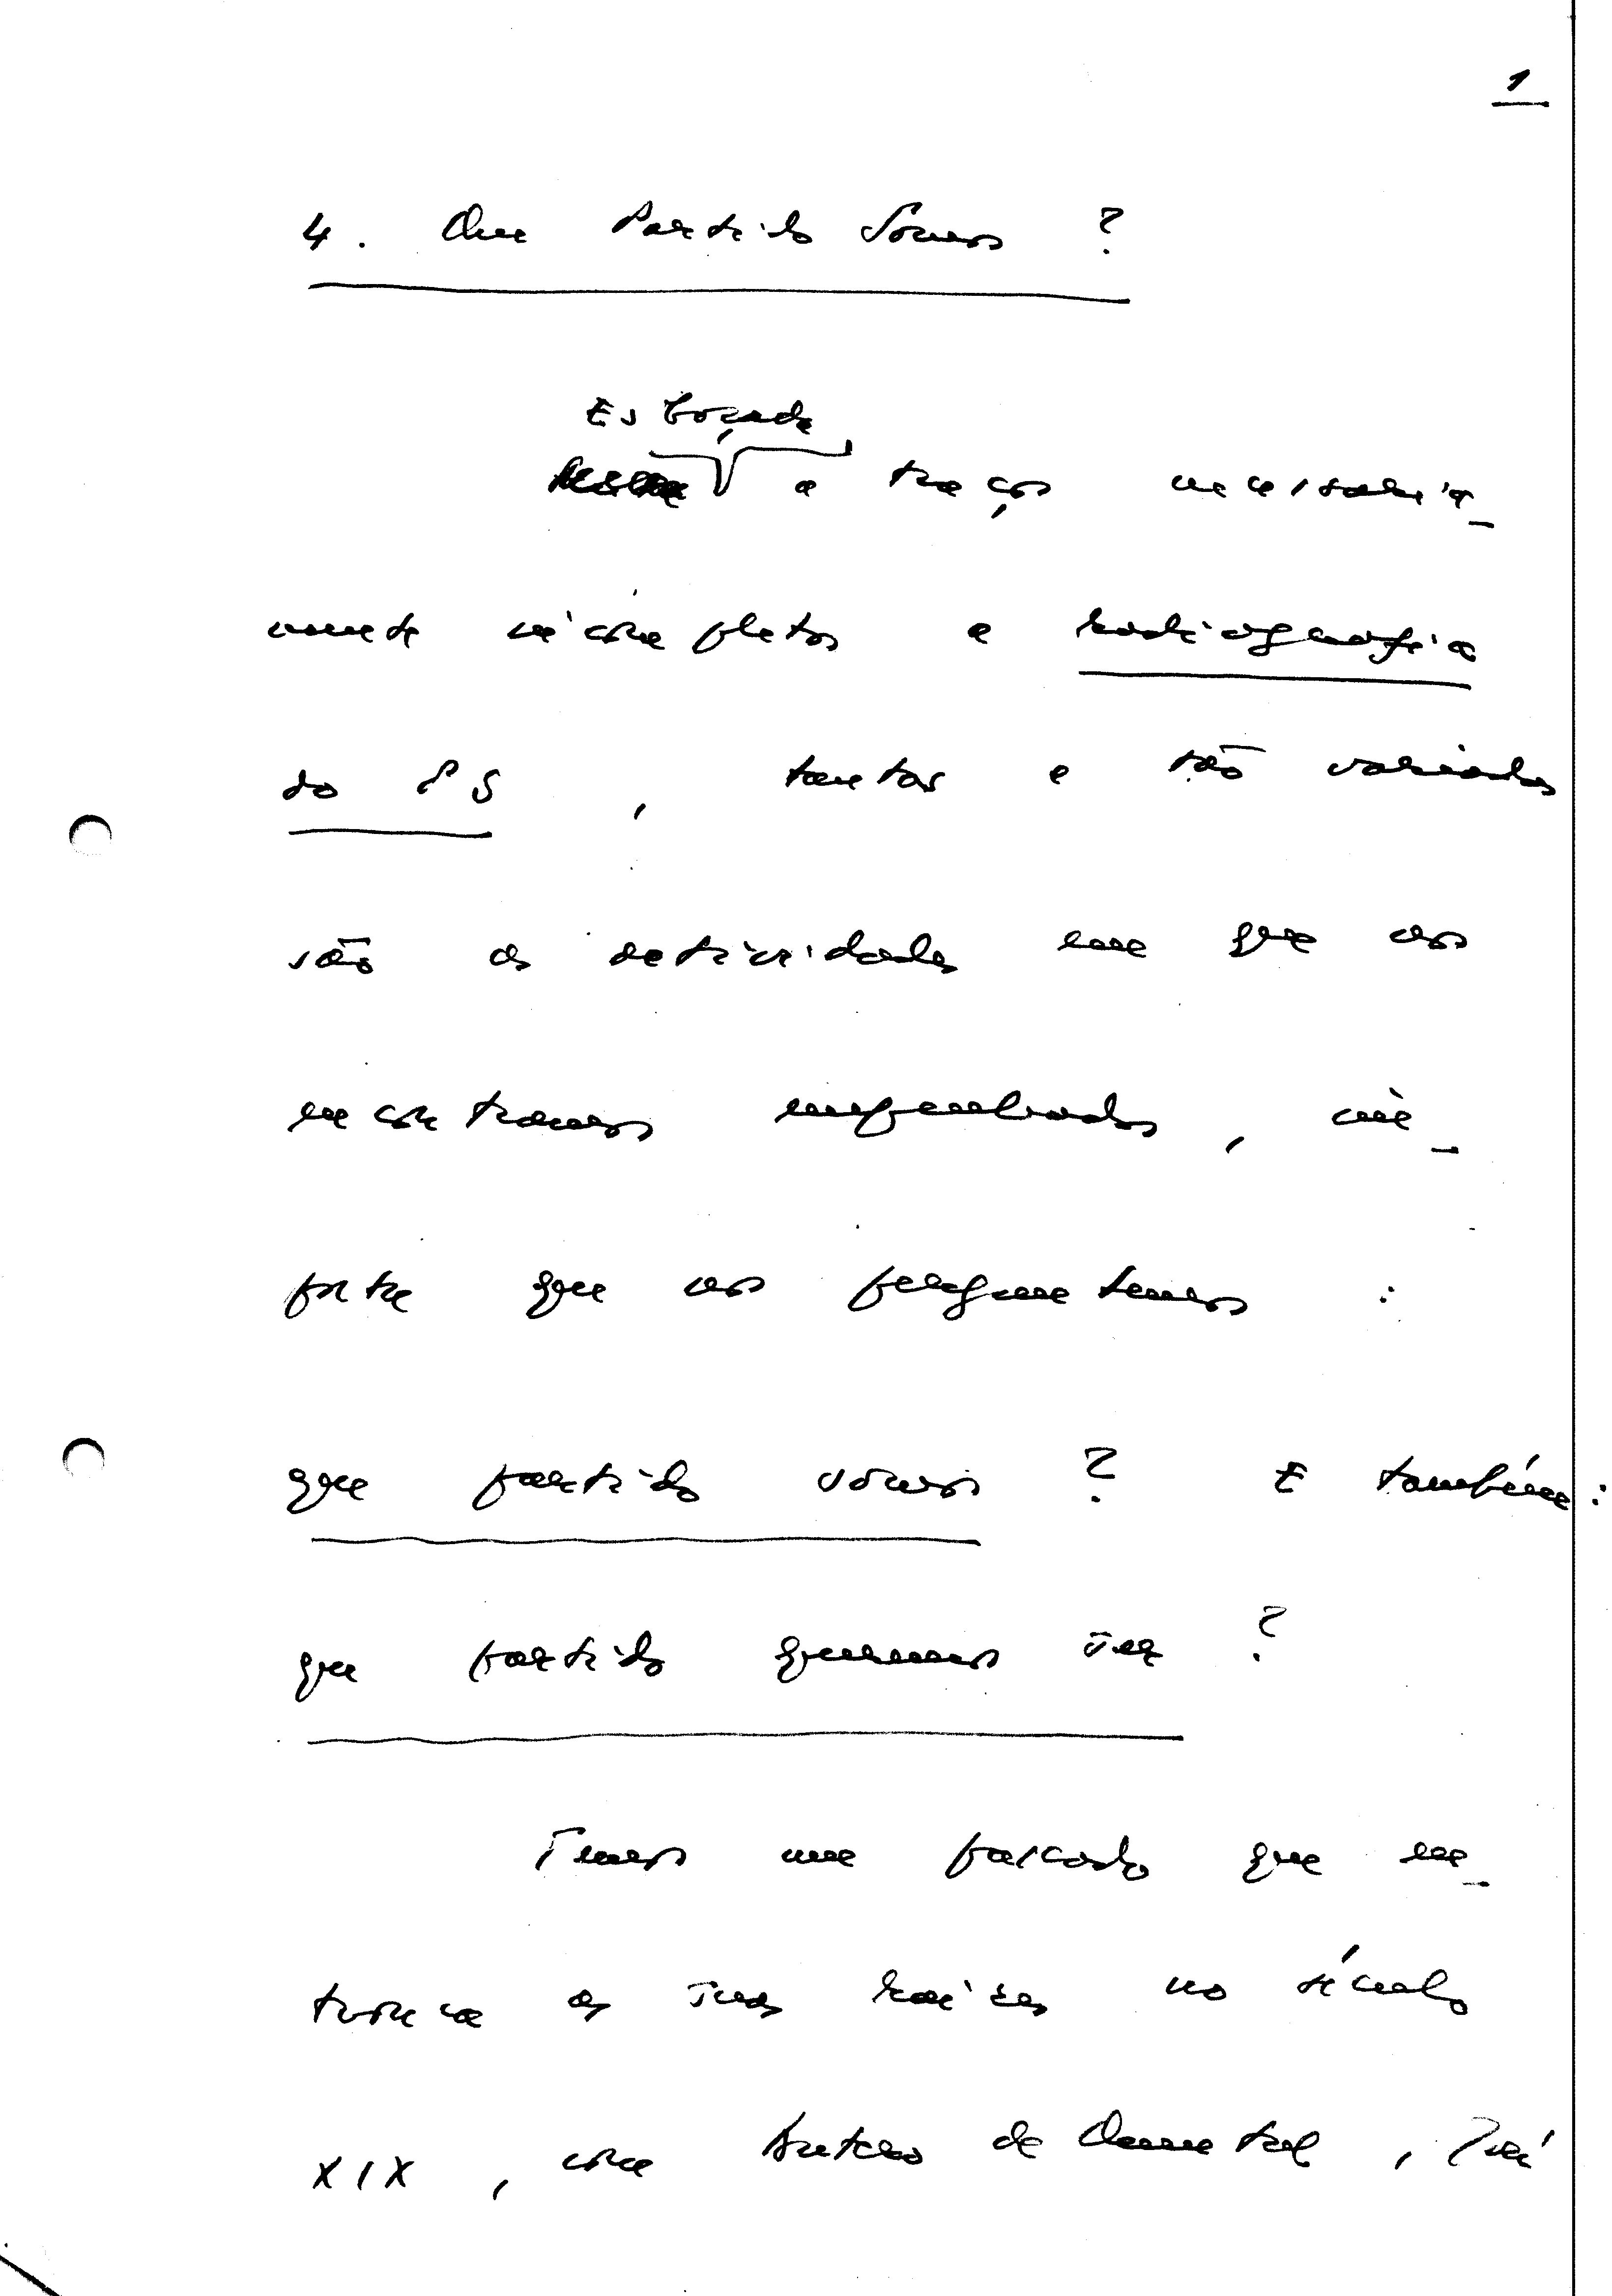 1
4. Que Partido Somos ?
Esboçada
a traços necessaria-
mente incompletos a radiografia
do PS , tantas e tão variadas
são as actividades em que nos
encontramos empenhados , im-
porta que nos perguntemos :
que partido somos ? E também :
que partido queremos ser ?
Temos um passado que en-
tronca as suas raízes no século
XIX , com Antero de Quental , José